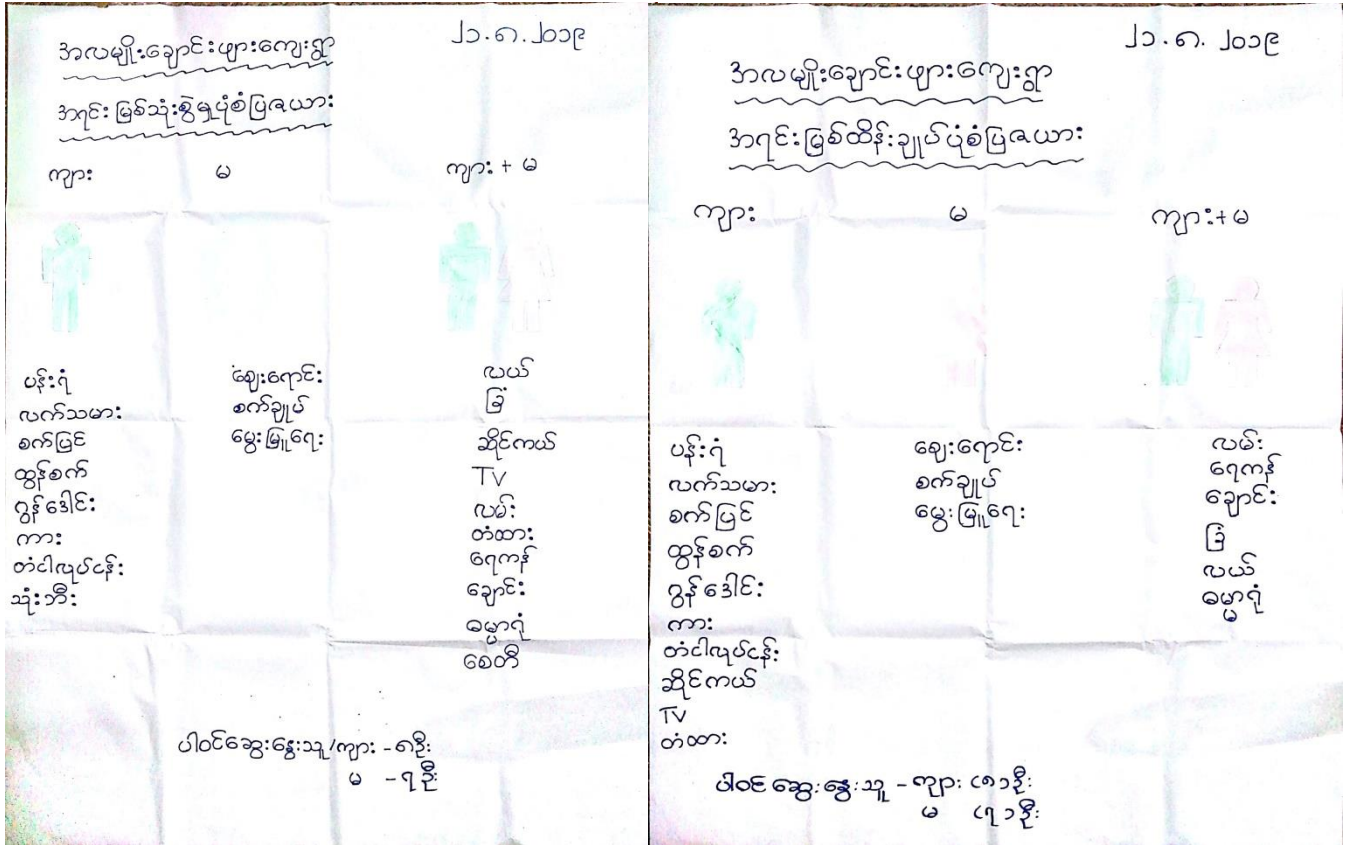 အလမျိုးချောင်းဖျားကျေးရွာ
၂၁.၈.၂၀၁၉
အရင်းမြစ်သုံးစွဲမှုပုံစံပြဇယား
ကျား မ ကျား + မ
ပန်းရံ
လက်သမား
စက်ပြင်
ထွန်စက်
ဂွန်ဒေါင်း
ကား
တံငါလုပ်ငန်း
သုံးဘီး
ဈေးရောင်း
စက်ချုပ်
မွေးမြူရေး
လယ်
ခြံ
ဆိုင်ကယ်
TV
လမ်း
တံထား
ရေကန်
ချောင်း
ဓမ္မာရုံ
စေတီ
ပါဝင်ဆွေးနွေးသူ/ကျား -၈ဦး
မ -၇ဦး
၂၁.၈.၂၀၁၉
အလမျိုးချောင်းဖျားကျေးရွာ
အရင်းမြစ်ထိန်းချုပ်ပုံစံပြဇယား
ကျား မ ကျား+မ
ပန်းရံ
လက်သမား
စက်ပြင်
ထွန်စက်
ဂွန်ဒေါင်း
ကား
တံငါလုပ်ငန်း
ဆိုင်ကယ်
TV
တံထား
ဈေးရောင်း
စက်ချုပ်
မွေးမြူရေး
လမ်း
ရေကန်
ချောင်း
ခြံ
လယ်
ဓမ္မာရုံ
ပါဝင်ဆွေးနွေးသူ - ကျား (၈)ဦး
မ (၇)ဦး